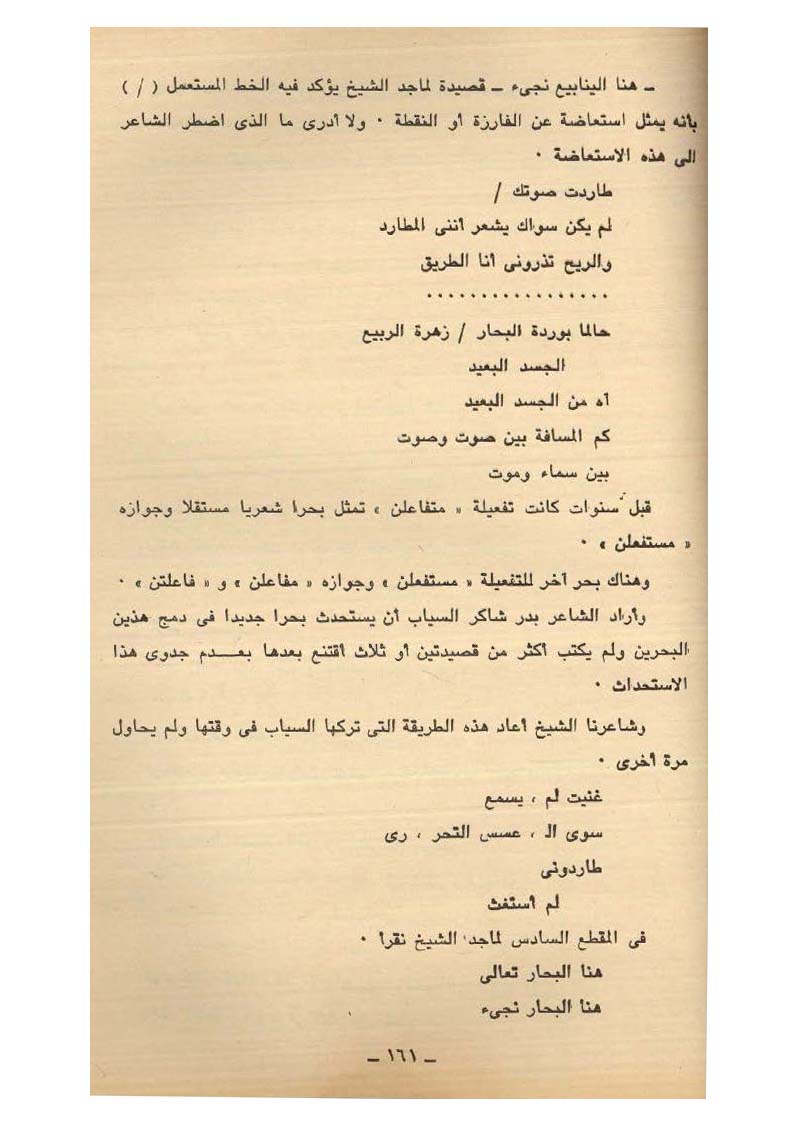 ــ هنا الينابيع نجىء ــ قصيدة لماجد الشيخ يؤكد فيه الخط المستعمل ( / )
بأنه يمثل استعاضة عن الفارزة أو النقطة ٠ ولا أدرى ما الذى اضطر الشاعر
الى هذه الاستعاضة ٠
طاردت صوتك /
لم يكن سواك يشعر أننى المطارد
والريح تذرونى أنا الطريق
٠٠٠٠٠٠٠٠٠٠٠٠٠٠٠٠٠
حالما بوردة البحار / زهرة الربيع
الجسد البعيد
آه من الجسد البعيد
كم المسافة بين صوت وصوت
بين سماء وموت
قبل سنوات كانت تفعيلة « متفاعلن » تمثل بحرا شعريا مستقلا وجوازه
« مستفعلن » ٠
وهناك بحر آخر للتفعيلة « مستفعلن » وجوازه « مفاعلن » و « فاعلتن » ٠
وأراد الشاعر بدر شاكر السياب أن يستحدث بحرا جديدا فى دمج هذين
البحرين ولم يكتب أكثر من قصيدتين أو ثلاث أقتنع بعدها بعـــدم جدوى هذا
الاستحداث ٠
وشاعرنا الشيخ أعاد هذه الطريقة التى تركها السياب فى وقتها ولم يحاول
مرة أخرى ٠
غنيت لم ، يسمع
سوى الـ ، عسس التحر ، رى
طاردونى
لم أستغث
فى المقطع السادس لماجد الشيخ نقرأ ٠
هنا البحار تعالى
هنا البحار نجىء
ــ ١٦١ ــ